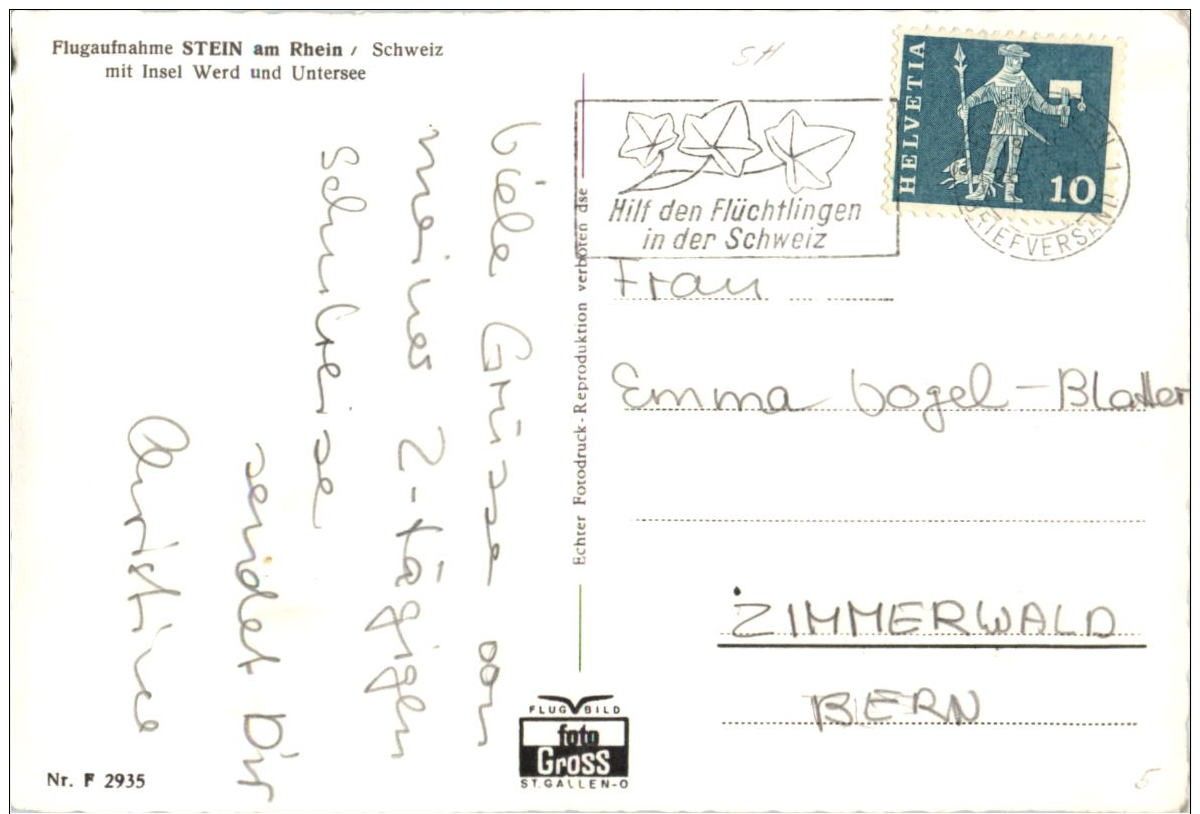 Flugaufnahme STEIN am Rhein / Schweiz
mit Insel Werd und Untersee
SH
HELVETIA
10
Hilf den Flüchtlingen
in der Schweiz
BRIEFVERSAND
Viele Grüsse von
meiner 2-tägigen
Schulreise
sendet Dir
Christine
Echter Fotodruck-Reproduktion verboten dse
Frau
Emma Vogel-Blatter
ZIMMERWALD
BERN
FLUG BILD
foto
Gross
ST.GALLEN-O
Nr. F 2935
5